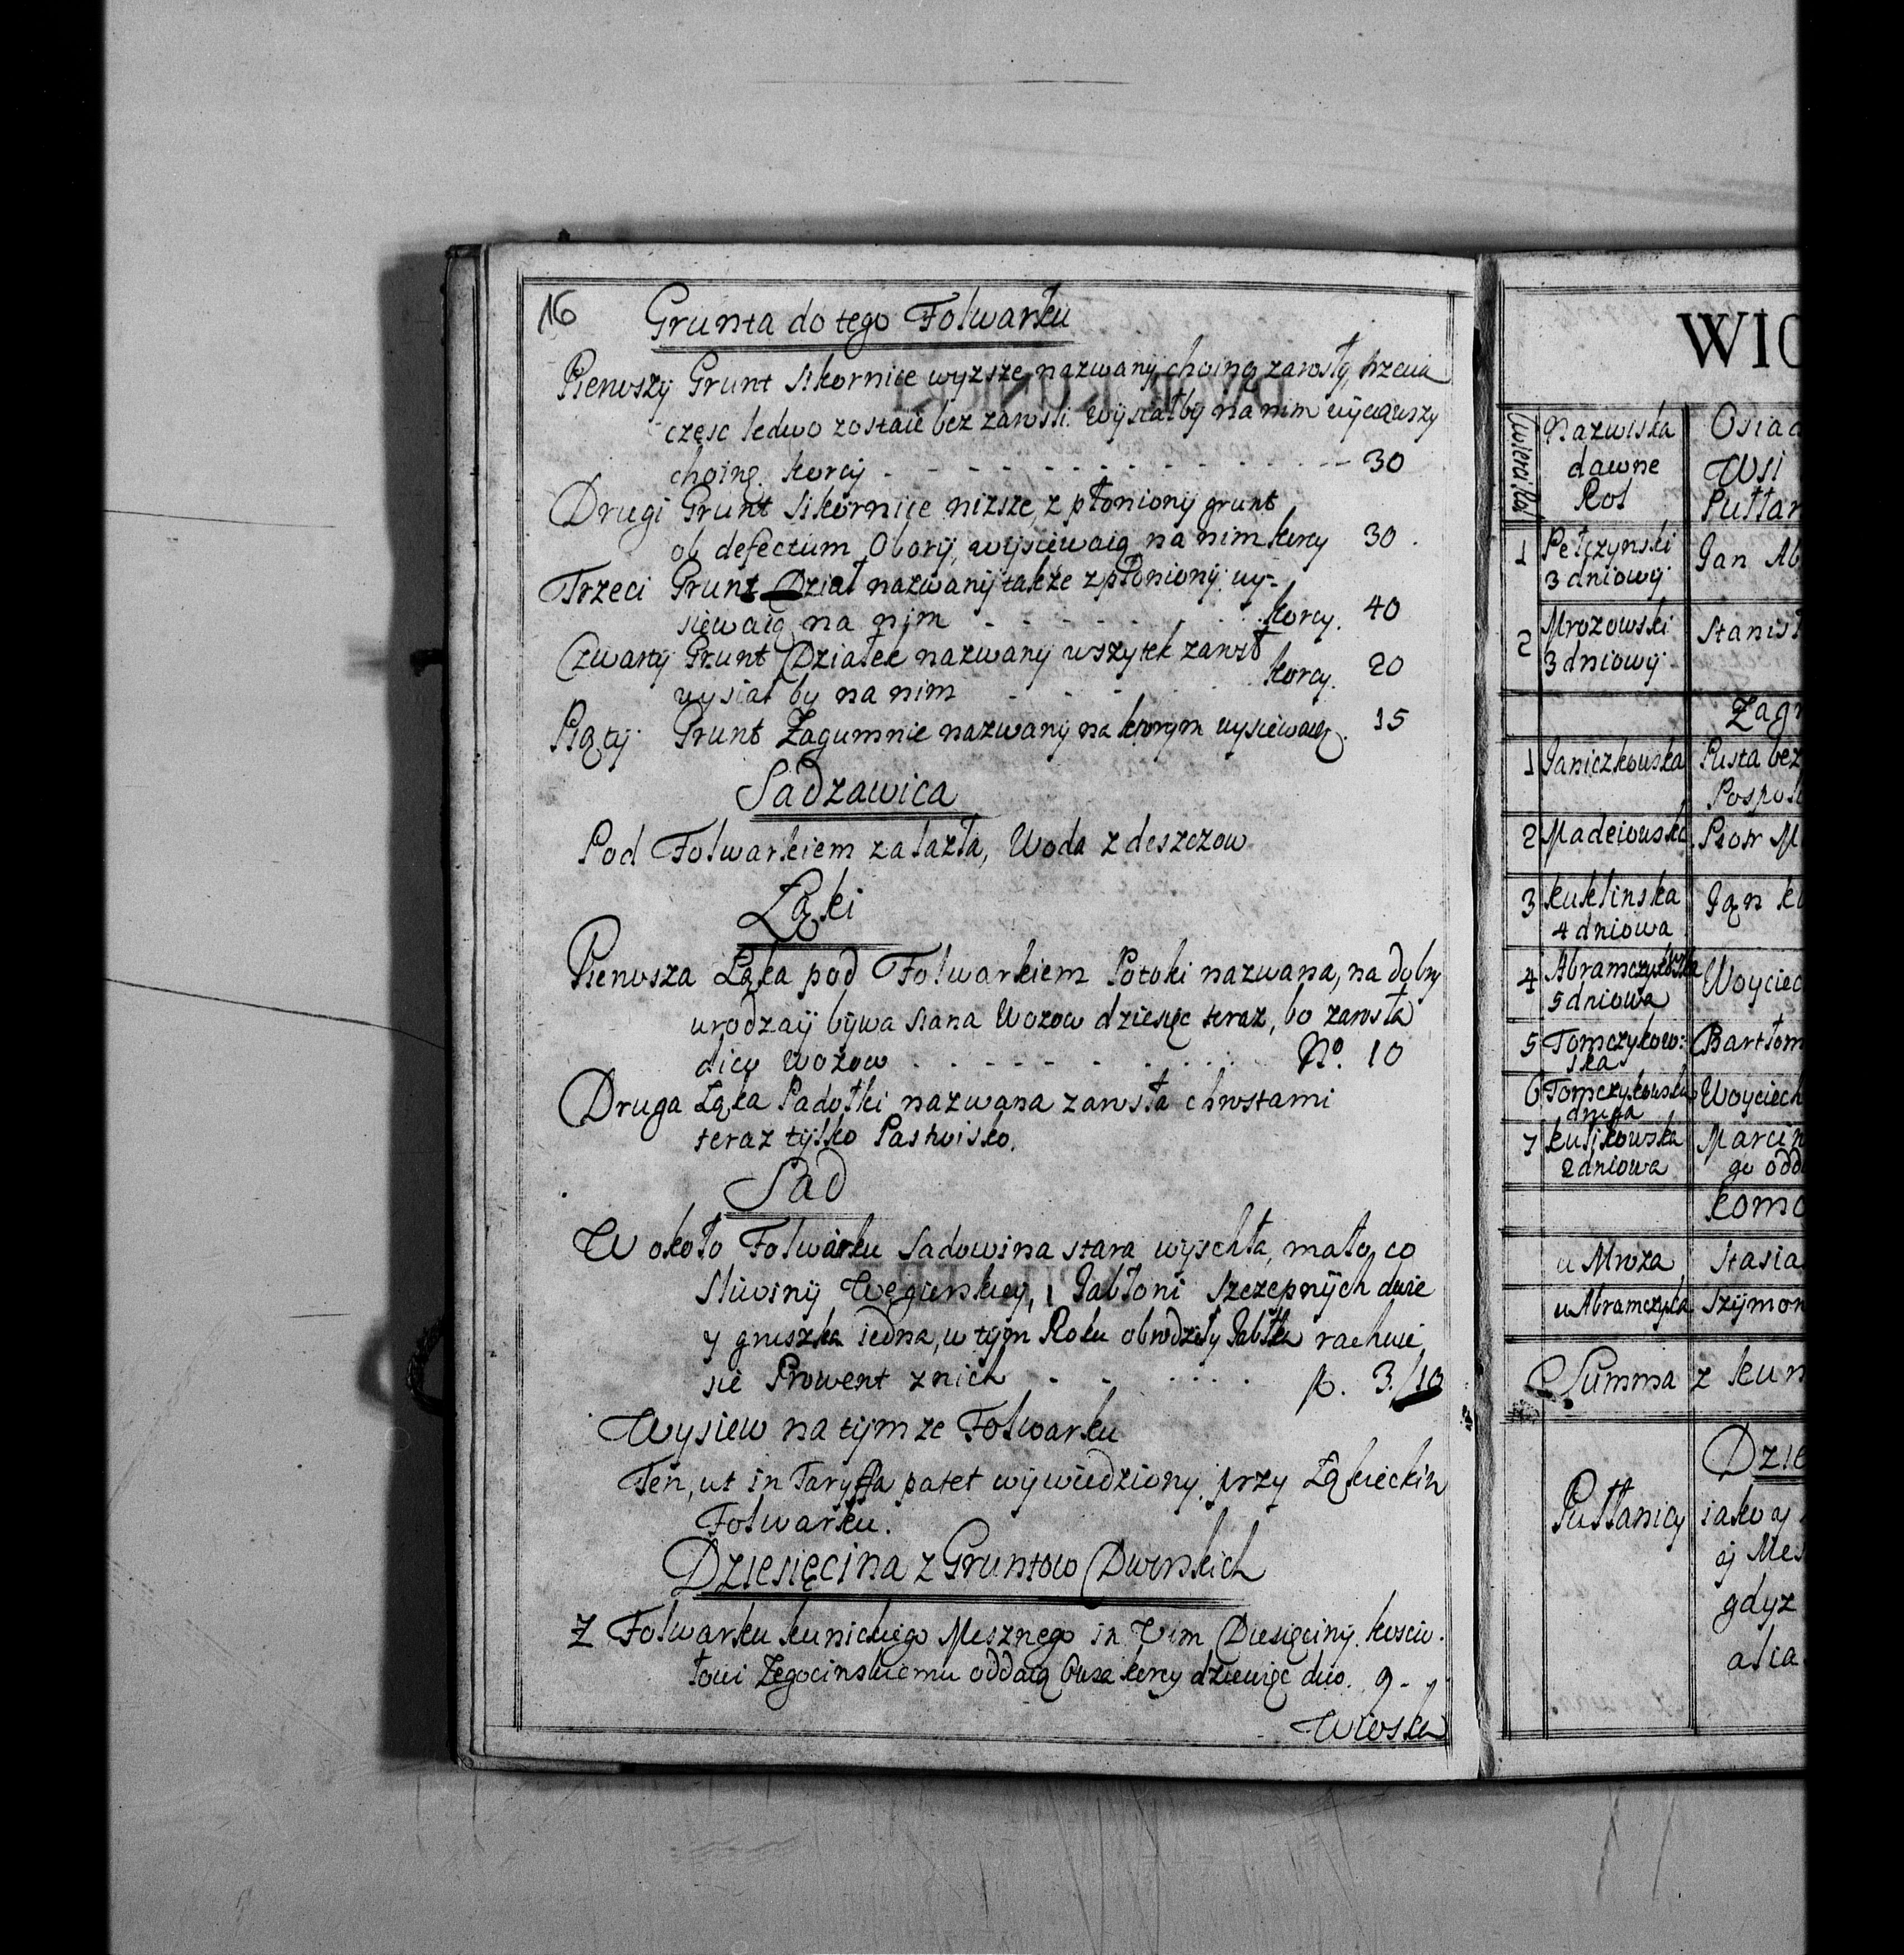 16
Grunta do tego Folwarku
Pierwszy Grunt Sikornice wyzsze nazwany choiną zarosły, trzecia
częsc ledwo zostaie bez zarosli. Wysiałby na nim wyciąwszy
choinę. korcy - - - 30
Drugi Grunt Sikornice nizsze, z płoniony grunt
ob defectum Obory, wysiewaią na nim korcy 30.
Trzeci Grunt Dział nazwany także zpłoniony. wy-
siewaią na nim - - - korcy. 40
Czwarty Grunt Działek nazwany wszytek zarosł
wysiał by na nim - - - korcy. 20
Piąty Grunt Zagumnie nazwany na ktorym wysiewaią. 15
Sadzawica
Pod Folwarkiem zalazła, Woda z deszczow
Łąki
Pierwsza Łąka pod Folwarkiem Potoki nazwana, na dobry
urodzay bywa siana Wozow dziesięc teraz, bo zarosła
Wozow - - - No. 10
Druga Łąka Padołki nazwana zarosła chrostami
teraz tylko Pastwisko.
Sad
W około Folwarku Sadowina stara wyschła, mało, co
Sliwiny Węgierskiey, Jabłoni Szczepnych dwie
y gruszka iedna, w tym Roku obrodziły Jabłka rachuie
sie Prowent znich - - - 3./10
Wysiew na tymze Folwarku
Ten, ut in Taryffa patet wywiedziony przy Łąkieckim
Folwarku.
Dziesięcina z Gruntow Dworskich
Z Folwarku kunickiego Mesznego in Vim Dziesięciny. koscio-
łowi Zegocinskiemu oddaią Owsa korcy dziewięc dico. 9-
Wioska
WIO
Cwierci Rol
Nazwiska
dawne
Rol
Osiad
Wsi
Pułtan
1 Pełczynski
3 dniowy
Jan Ab
2 Mrozowski
3 dniowy
Stanisł
Zagr
1 Janiczkowska
Pusta bez
Pospol
2 Madeiowska
Piotr M
3 kuklinska
4 dniowa
Jan ku
4 Abramczykowska
5 dniowa
Woyciec
5 Tomczykow:
ska
Bartłom
6 Tomczykowska
druga
Woyciech
7 kulikowska
2 dniowa
Marcin
go odd
komo
u Mroza
Stasia
u Abramczyka
Szymon
Summa z kun
Dzie
Pułłanicy
iako y
y Mes
gdyz
alia